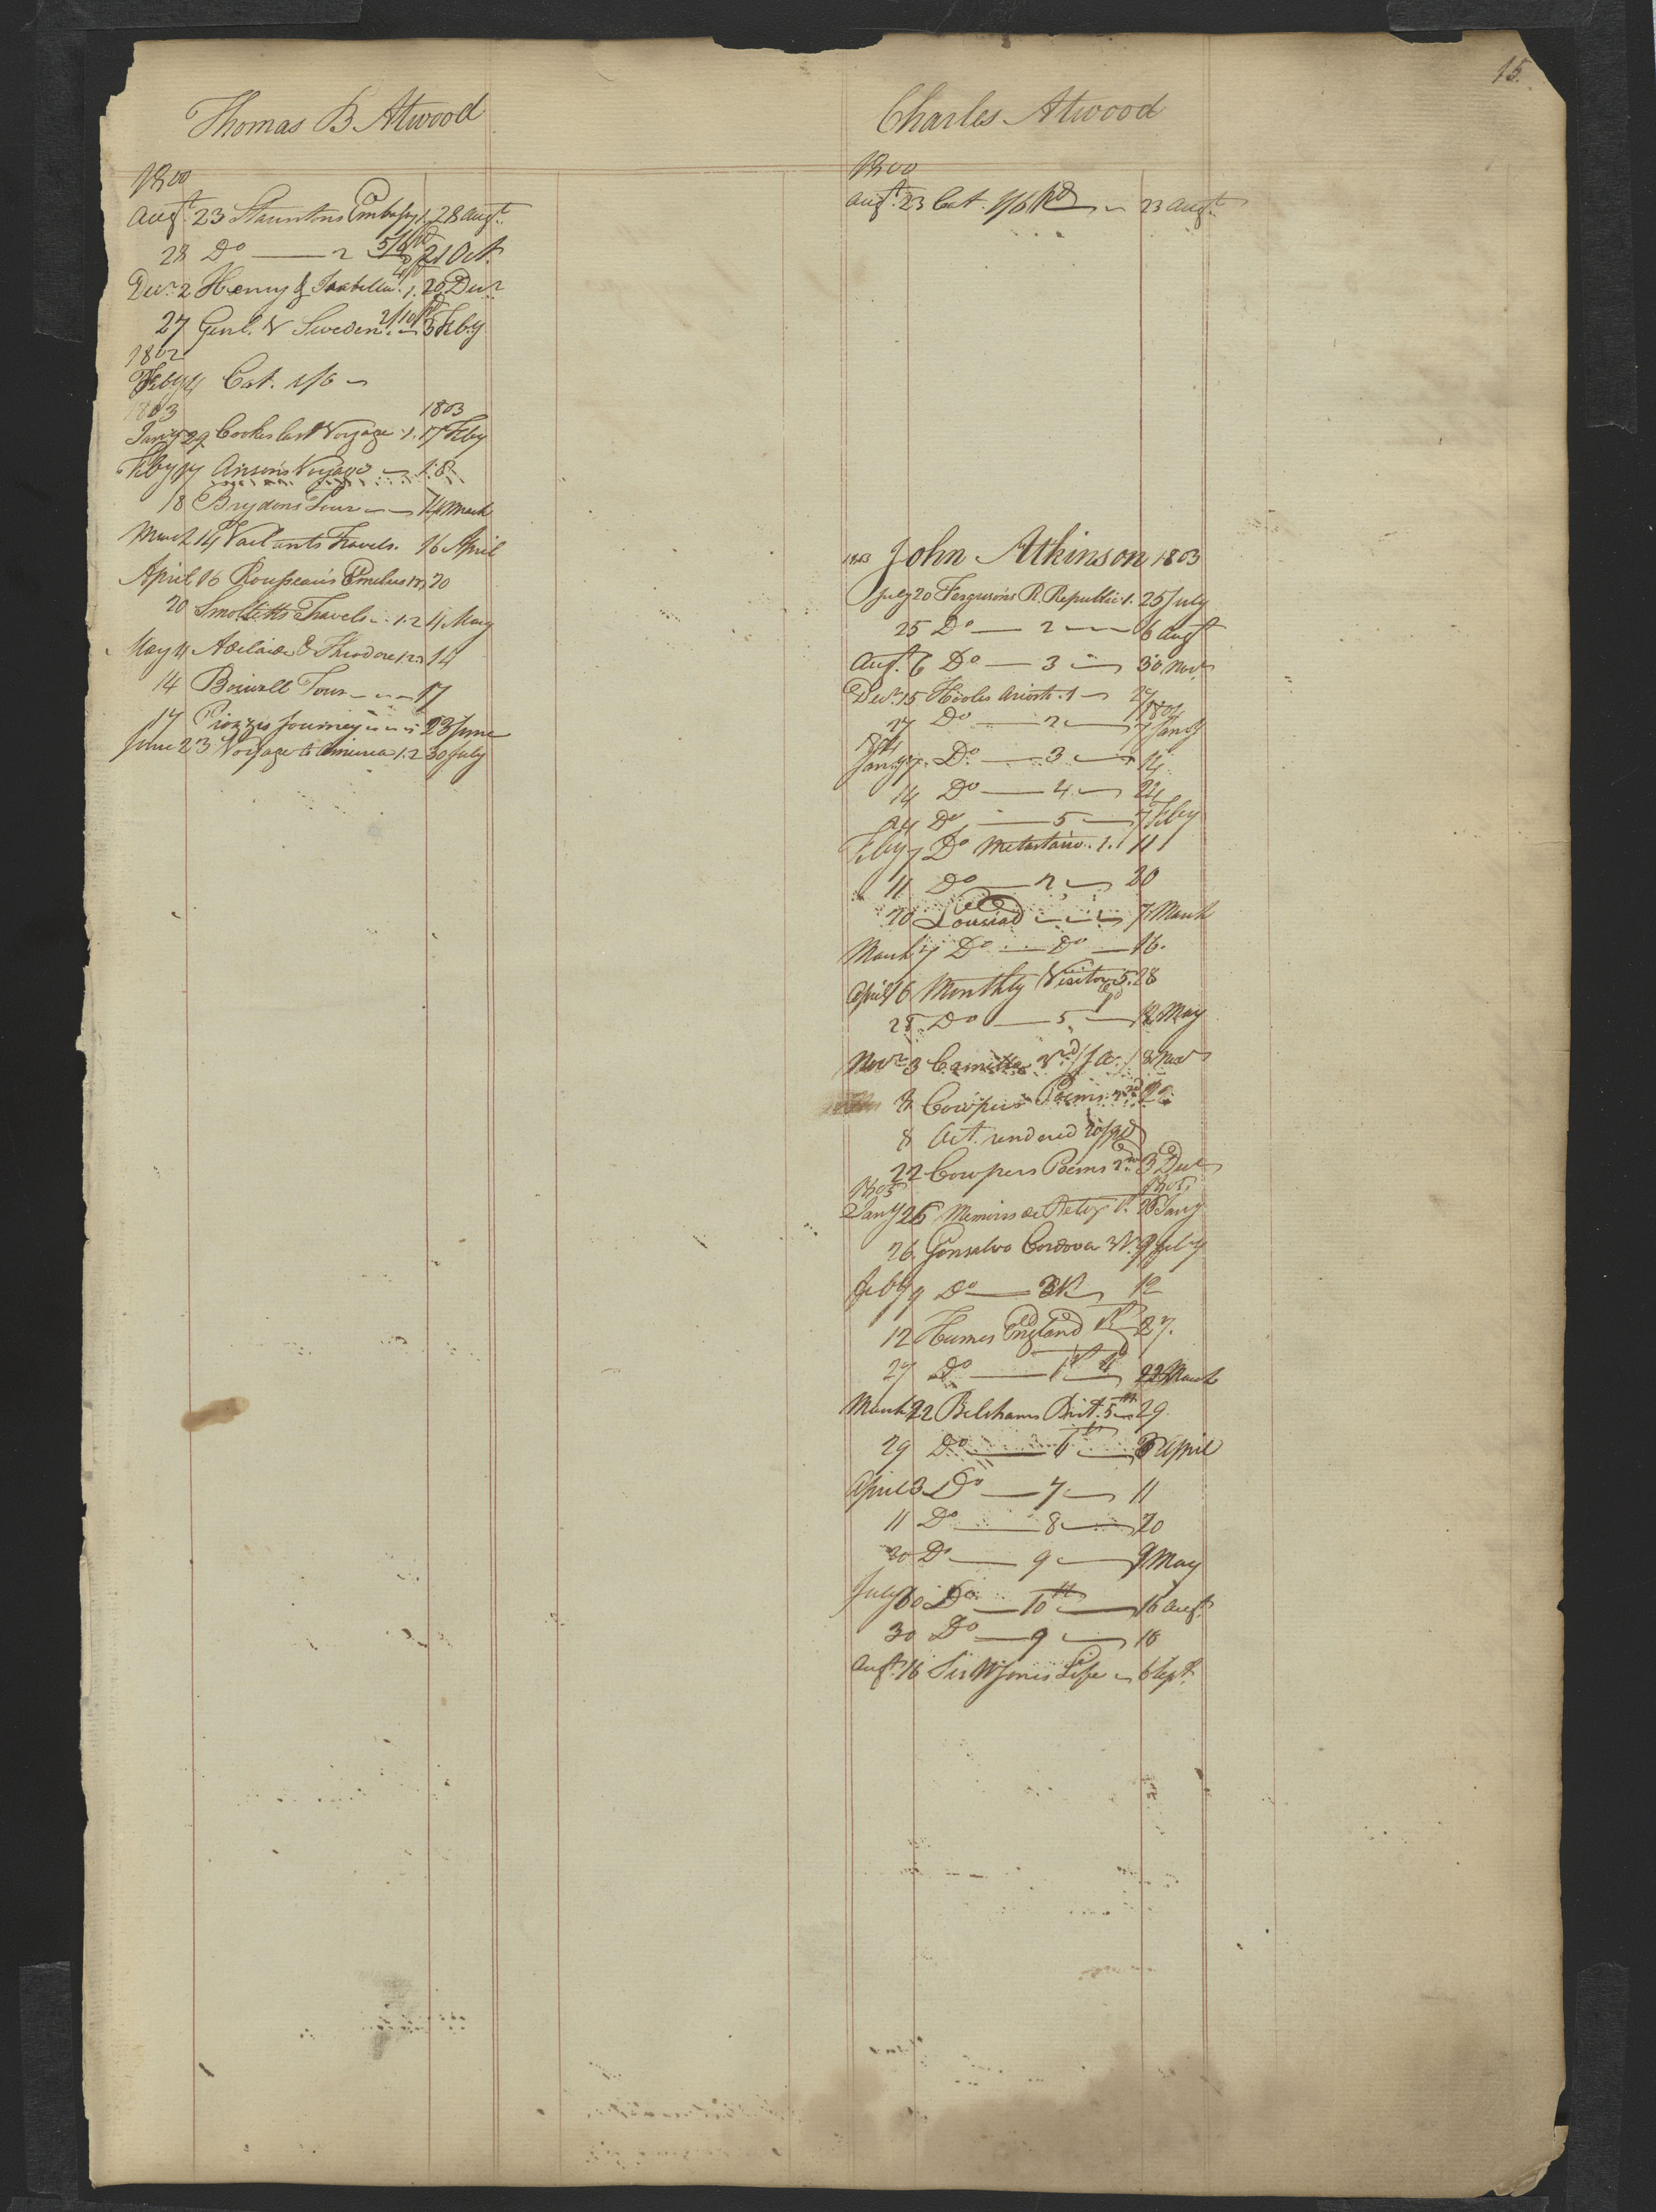 15.
Thomas B. Atwood
1800
Augt. 23 Stauntons Embassy 1. 28 Augt.
28 Do — 2 5/6 Pd 21 Oct.
Decr. 2 Henry & Isabella. 1. 20 Decr.
27 Genl. V Sweden. 2/10 Pd 5 Feby
1802
Feby 4 Cat. 1/6
1803 1803
Jany 29 Cookes last Voyage 1. 17 Feby
Feby 17 Ansons Voyage — 18
18 Brydons Tour — 14 March
March 14 Vailants Travels. 16 April
April 16 Rousseau's Emelius 20
20 Smolletts Travels 1.2 4 May
May 4 Adelaide & Theodore 14
14 Boswell Tour — 17
17 Piozzis Journey 23 June
June 23 Voyage to America 1.2 30 July
Charles Atwood
1800
Augt. 23 Cat. 1/6 Pd 23 Augt.
1803 John Atkinson 1803
July 20 Ferguson's R. Republic 1. 25 July
25 Do — 2 — 6 Augt
Augt. 6 Do — 3 — 30 Novr
Decr. 15 Hooles Ariosto. 1 — 27
1804
27 Do — 2 — 7 Jany
1804
Jany 7. Do. — 3 — 14
14 Do — 4 — 24
24 Do — 5 — 7 Feby
Feby 7 Do Metastasio. 1. 11
11 Do — 2 — 20
20 Lousiad — 7 March
March 7 Do — Do — 16.
April 6 Monthly Visitor 5. 28
28 Do — 5 — 12 May
Novr. 3 Camilla 8 Novr
8 Cowpers Poems 22
8 Act. rendered
22 Cowpers Poems 2nd 3 Decr
1805 1805
Jany 26 Memoirs de Retz 1. 26 Jany
26 Gonsalvo Cordova 9 Feby
Feby 9 Do — 12
12 Humes England 27.
27 Do — 22 March
March 22 Belshams Brit. 5th 29
29 Do — 6th — 3 April
April 3 Do — 7 — 11
11 Do — 8 — 20
20 Do — 9 — 9 May
July 30 Do — 10th — 16 Augt.
30 Do — 9 — 16
Augt. 16 Sir W Jones Life 6 Sept.